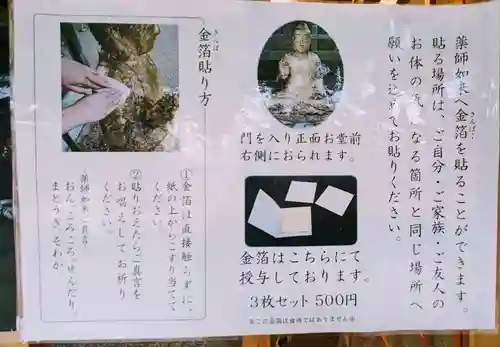 薬師如来へ金箔を貼ることができます。
きんぱく
貼る場所は、ご自分・ご家族・ご友人の
お体の気になる箇所と同じ場所へ
願いを込めてお貼りください。
門を入り正面お堂前
右側におられます。
金箔はこちらにて
授与しております。
3枚セット 500円
※この金箔は食用ではありません※
きんぱく
金箔貼り方
①金箔は直接触らずに、
紙の上からこすり当てて
ください。
②貼りおえたらご真言を
お唱えしてお祈り
ください。
薬師如来ご真言
おん・ころころ・せんだり
まとうぎ・そわか